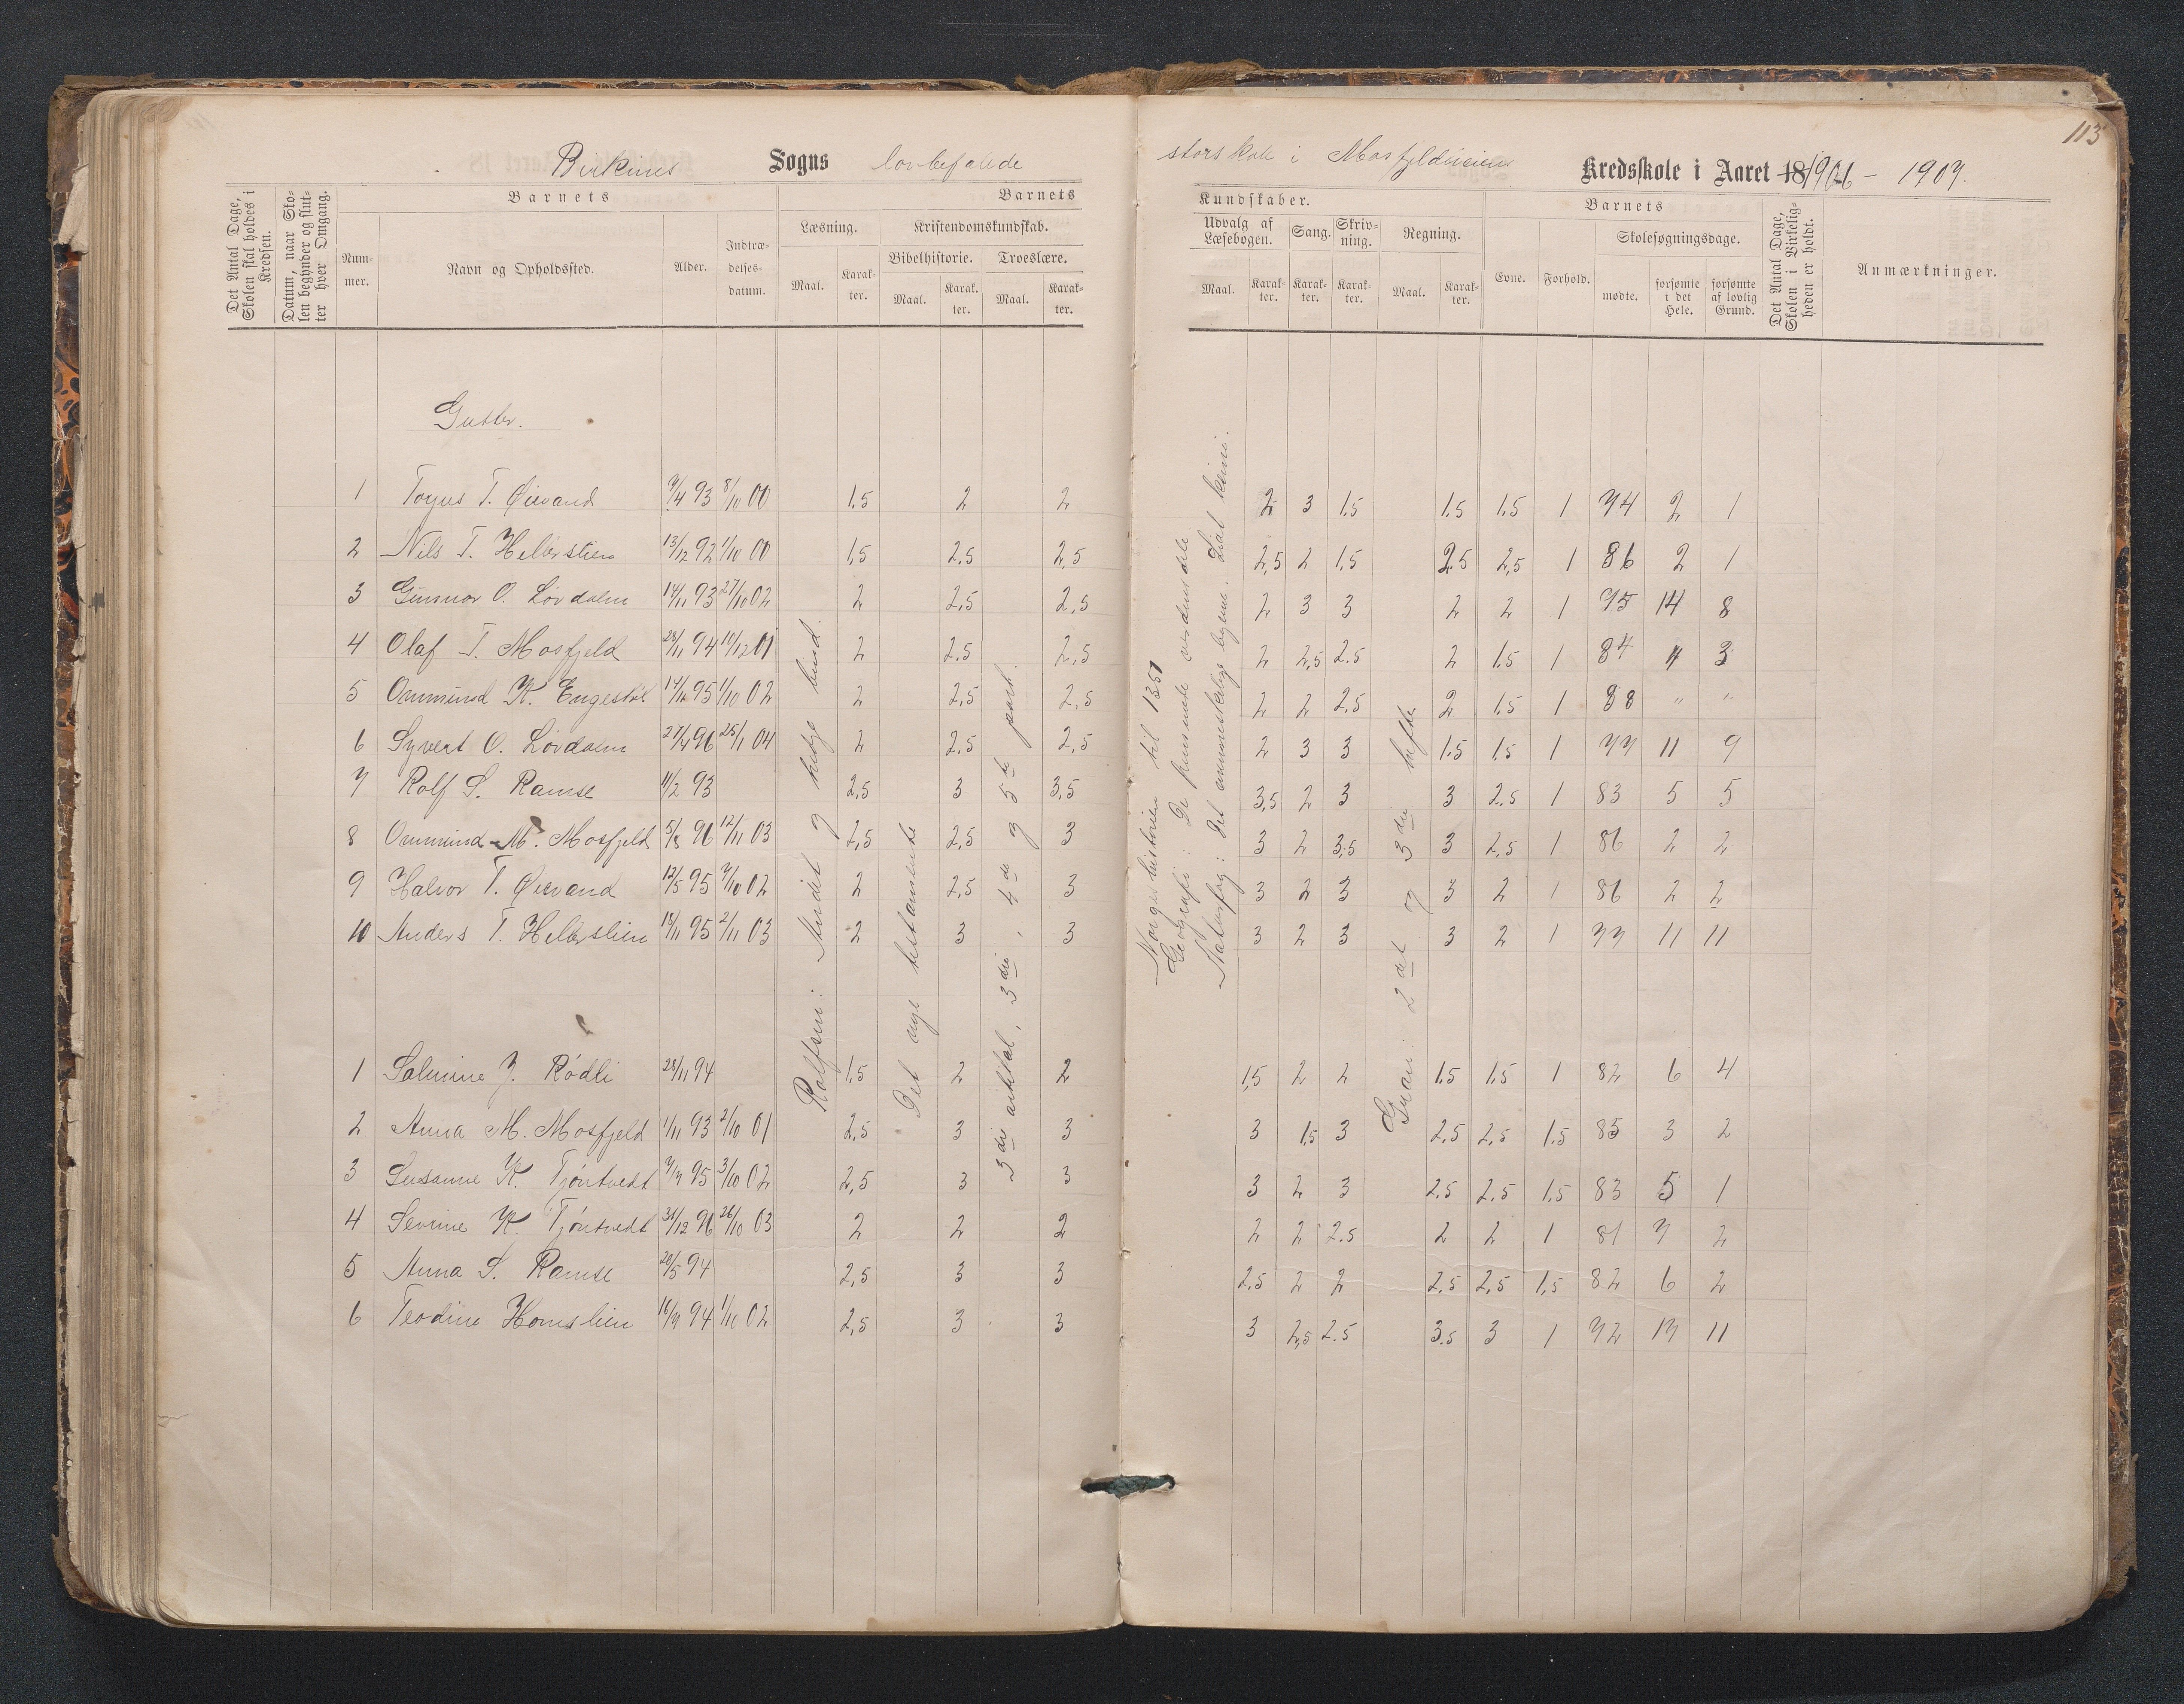 113
Birkenes Sogns lovbefalede storskole i Mosfjeldheiens Kredsskole i Aaret 18 1906 - 1907.
Det Antal Dage, Skolen skal holdes i Kredsen.
Datum, naar Skolen begynder og slutter hver Omgang.
Barnets
Nummer.
Navn og Opholdssted.
Alder.
Indtrædelsesdatum.
Barnets Kundskaber.
Læsning.
Maal.
Karakter.
Kristendomskundskab.
Bibelhistorie.
Maal.
Karakter.
Troeslære.
Maal.
Karakter.
Udvalg af Læsebogen.
Maal.
Karakter.
Sang.
Karakter.
Skrivning.
Karakter.
Regning.
Maal.
Karakter.
Barnets
Evne.
Forhold.
Skolesøgningsdage.
mødte.
forsømte i det Hele.
forsømte af lovlig Grund.
Det Antal Dage, Skolen i Virkeligheden er holdt.
Anmærkninger.
Gutter.
1 T. Øievand 9/4 93 8/10 00 1,5 2 2 2 3 1.5 1.5 1.5 1 74 2 1
2 Nils T. 13/12 92 1/10 00 1,5 2.5 2,5 2,5 2 1.5 2.5 2,5 1 86 2 1
3 Gunnar O. Løvdalen 14/11 93 27/10 02 2 2,5 2,5 2 3 3 2 2 1 75 14 8
4 Olaf T. Mosfjeld 28/11 94 10/12 01 2 2.5 2,5 2 2,5 2.5 2 1.5 1 84 4 3
5 Ommund K. Engestøl 14/12 95 1/10 02 2 2,5 2,5 2 2 2.5 2 1.5 1 88 " "
6 Syvert O. Løvdalen 27/4 96 25/1 04 2 2.5 2,5 2 3 3 1.5 1.5 1 77 11 9
7 Rolf S. Ramse 11/2 93 2,5 3 3,5 3,5 2 3 3 2.5 1 83 5 5
8 Ommund M. Mosfjeld 5/8 96 12/11 03 2,5 2,5 3 3 2 3,5 3 2,5 1 86 2 2
9 Halvor T. Øievand 12/5 95 7/10 02 2 2,5 3 3 2 3 3 2 1 86 2 2
10 Anders T. 18/11 95 2/11 03 2 3 3 3 2 3 3 2 1 77 11 11
1 Salmine J. Rødli 28/11 94 1,5 2 2 1,5 2 2 1.5 1.5 1 82 6 4
2 Anna M. Mosfjeld 1/11 93 2/10 01 2,5 3 3 3 1,5 3 2.5 2,5 1.5 85 3 2
3 Susanne K. Tjøntvedt 7/7 95 3/10 02 2,5 3 3 3 2 3 2.5 2.5 1.5 83 5 1
4 Sevrine K. Tjøntvedt 31/12 96 26/10 03 2 2 2 2 2 2.5 2 2 1 81 7 2
5 Anna S. Ramse 20/5 94 2,5 3 3 2,5 2 2 2,5 2,5 1,5 82 6 2
6 Teodine Homslien 16/7 94 1/10 02 2,5 3 3 3 2,5 2.5 3.5 3 1 72 17 11
Rolfsen: Andet og tredje bind.
Det nye testamente
3die artikkel, 3die, 4de og 5te part.
Norgeshistorien til 1350
Geografi: De fremmede verdensdele
Naturfag: Det menneskelige legeme.
2det og 3die hefte